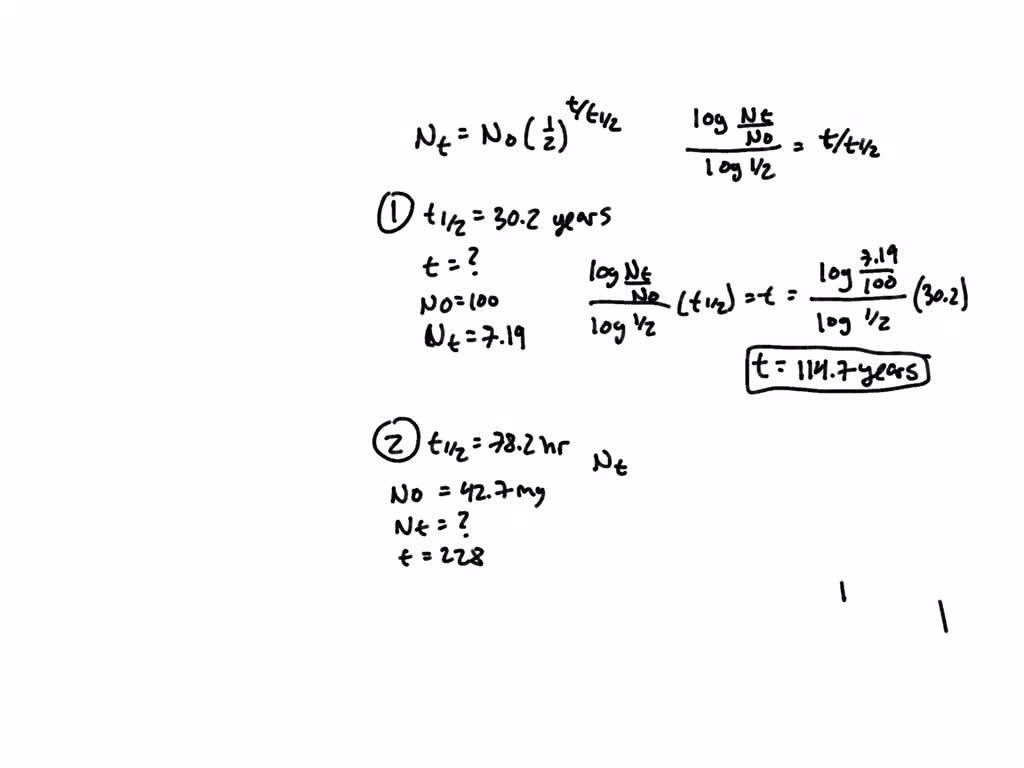 Nt = No (1/2)^t/t1/2   log Nt/No / log 1/2 = t/t1/2
① t1/2 = 30.2 years
t = ?
No = 100
Nt = 7.19
log Nt/No / log 1/2 (t1/2) = t = log 7.19/100 / log 1/2 (30.2)
t = 114.7 years
② t1/2 = 78.2 hr   Nt
No = 42.7 mg
Nt = ?
t = 228